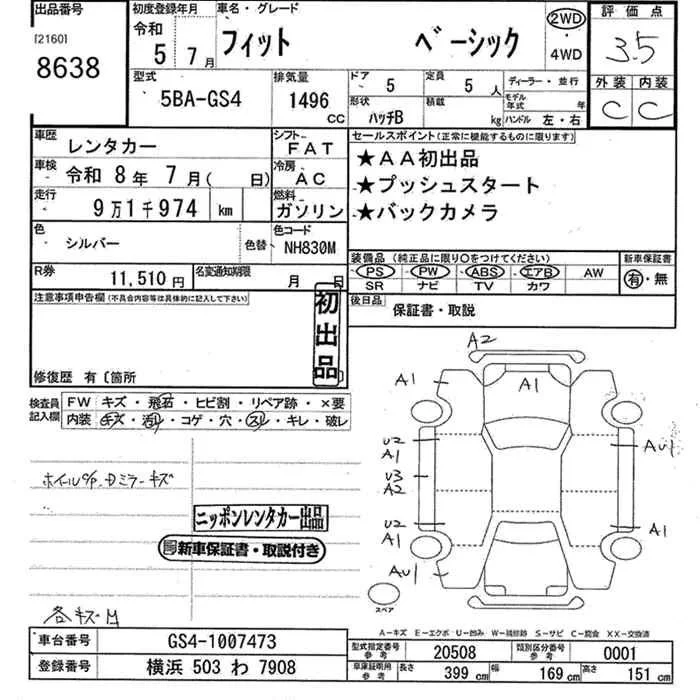 出品番号 初度登録年月 車名・グレード 2WD 評価点
[2160] 令和 5年 7月 フィット ベーシック ・ 3.5
8638 4WD
型式 排気量 ドア 5 定員 5人 ディーラー・並行 外装 内装
5BA-GS4 1496 CC 形状 ハッチB 積載 kg モデル年式 年 C C
ハンドル 左・右
車歴 レンタカー シフト FAT セールスポイント(正常に機能するものに限ります)
車検 令和 8年 7月( 日) 冷房 AC ★AA初出品
走行 9万1千974 km 燃料 ガソリン ★プッシュスタート
★バックカメラ
色 シルバー 色替 色コード NH830M
装備品 (純正品に限り○をつけてください) 新車保証書
R券 11,510円 名変通知期限 月 日 PS PW ABS エアB AW 有・無
SR ナビ TV カワ
注意事項申告欄(不具合内容等は具体的に記入して下さい) 後日品 保証書・取説
初出品
修復歴 有〔箇所
検査員記入欄 FW キズ・飛石・ヒビ割・リペア跡・×要
内装 キズ・汚れ・コゲ・穴・スレ・キレ・破レ
A2
A1 A1
U2 A1 AU1
U3 A2
U2 A1 A1
AU1
スペア
キズ
ニッポンレンタカー出品
新車保証書・取説付き
各キズ
A-キズ E-エクボ U-凹み W-補修跡 S-サビ C-腐食 XX-交換済
車台番号 GS4-1007473 型式指定番号 参考 20508 類別区分番号 参考 0001
登録番号 横浜 503 わ 7908 車庫証明用 参考 長さ 399cm 幅 169cm 高さ 151cm